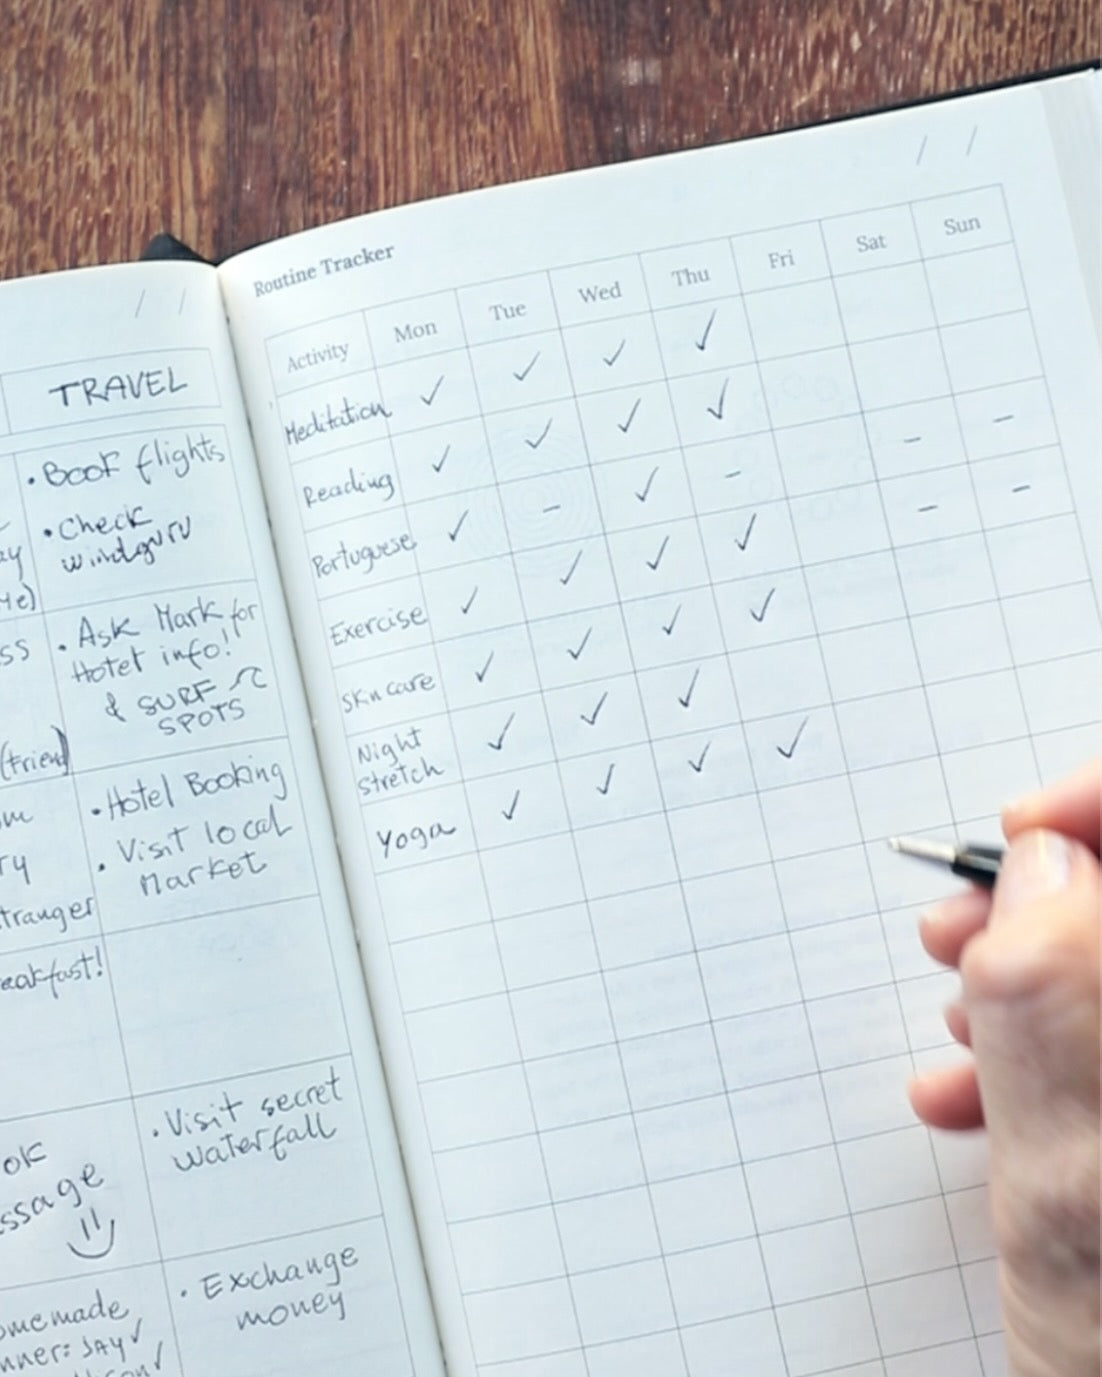 / /
TRAVEL
• Book flights
• Check
windguru
ay
• Ask Mark for
Hotel info!!
& SURF
SPOTS
ss
(friend)
• Hotel Booking
• Visit local
Market
tranger
eakfast!
• Visit secret
waterfall
ok
ssage
• Exchange
money
omemade
nner: JAY ✓
/ /
Routine Tracker
Activity Mon Tue Wed Thu Fri Sat Sun
Meditation ✓ ✓ ✓ ✓
Reading ✓ ✓ ✓ ✓
Portuguese ✓ – ✓ – – –
Exercise ✓ ✓ ✓ ✓ – –
Skn care ✓ ✓ ✓ ✓
Night
Stretch ✓ ✓ ✓
Yoga ✓ ✓ ✓ ✓